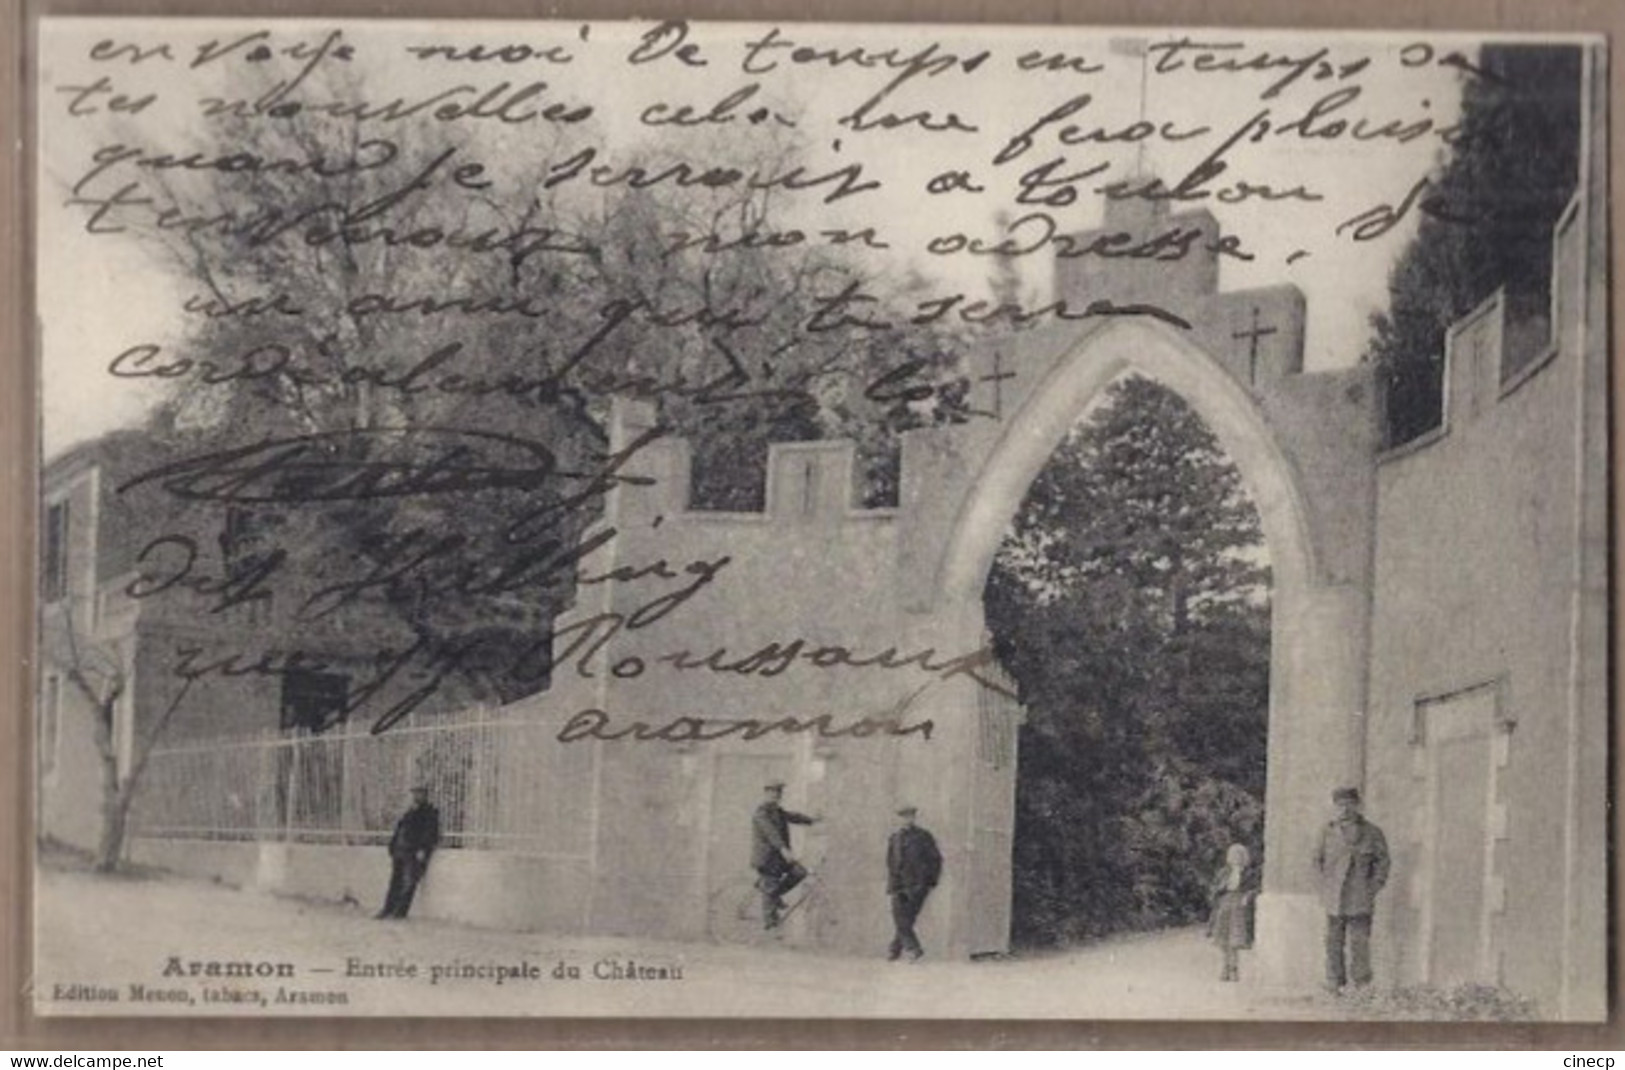 envoye moi De temps en temps De
tes nouvelles cela me fera plaisir
quand je serrais a Toulon
mon adresse. de
un ami qui te serre
cordialement les
dit
rue JJ Roussaux
aramon
Aramon — Entrée principale du Château
Edition Menon, tabacs, Aramon
www.delcampe.net
cinecp